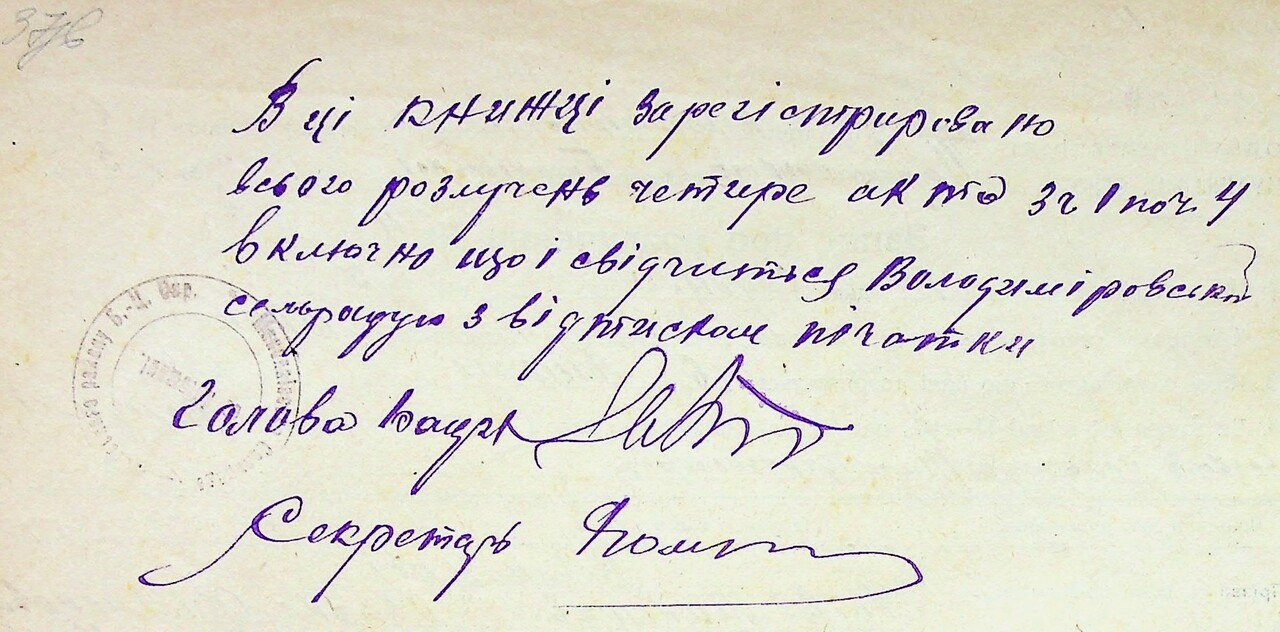 37/6
В ці книжці зарегістрировано
всього розлучень четире акта з 1 по ч. 4
включно що і свідчиться Володиміровська
сельрадую з відтиском пічатки
Голова
Секретарь